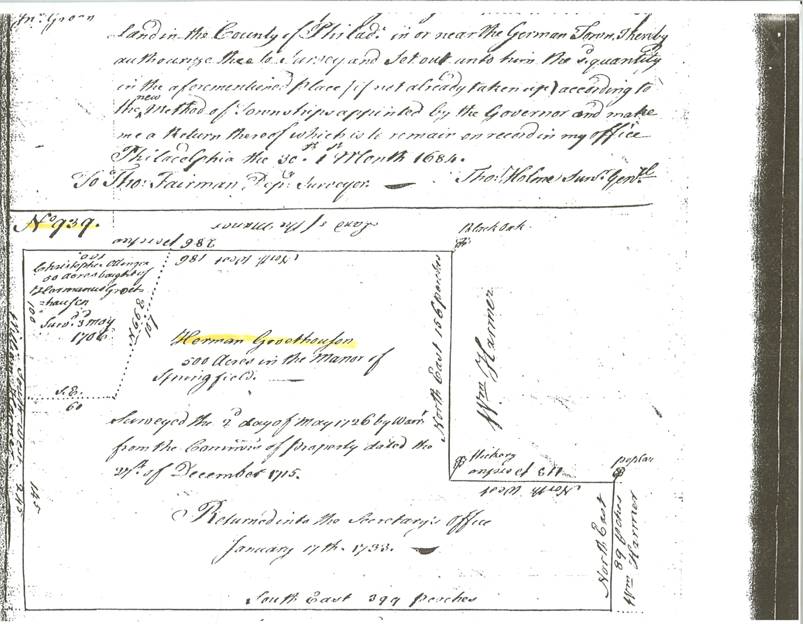 Jno. Green
Land in the County of Philad.ª in or near the German Town, I hereby
authourize thee to Survey and Set out unto him the s.d quantity
in the aforementioned Place (if not already taken up) according to
the new Method of Townships appointed by the Governor and make
me a Return thereof which is to remain on record in my office
Philadelphia the 30.th 1.st Month 1684.
To Tho.s Fairman, Dep.y Surveyor. Tho.s Holme Surv.r Gen.ral
No 939.
Land of the Manor
286 perches
North West 186
100
Christopher Ottinger
50 acres bought of
Hermanus Groet-
=hausen
Surv.d 3.d May
1706
100
N 66 E
107
S.E.
60
William Harmer
South West 245
145
Black Oak
North East 156 perches
Wm Harmer
Herman Groethousen
500 Acres in the Manor of
Springfield.
Surveyed the 2.d day of May 1726 by Warr.t
from the Commiss.rs of property dated the
21.st of December 1715.
Hickory
poplar
113 perches
North West
Returned into the Secretary's Office
January 17th. 1733.
North East
89 perches
Wm Harmer
South East 399 perches